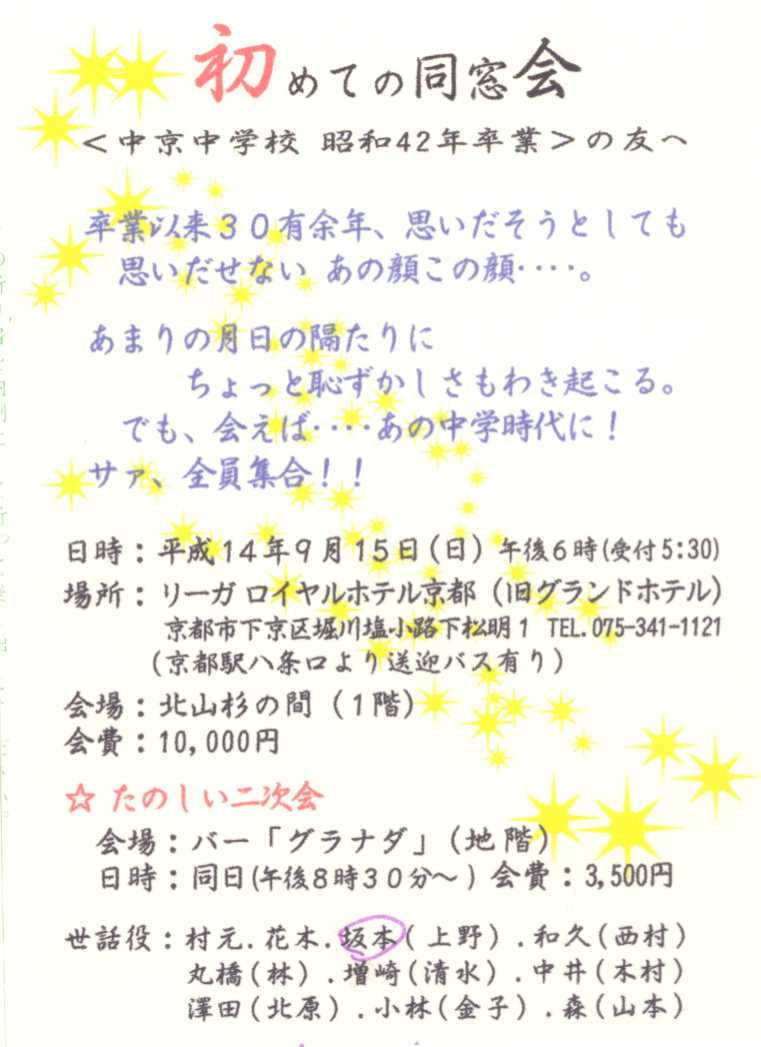 初めての同窓会
<中京中学校 昭和42年卒業>の友へ
卒業以来30有余年、思いだそうとしても
思いだせない あの顔この顔‥‥。
あまりの月日の隔たりに
ちょっと恥ずかしさもわき起こる。
でも、会えば‥‥あの中学時代に!
サァ、全員集合!!
日時:平成14年9月15日(日) 午後6時(受付5:30)
場所:リーガ ロイヤルホテル京都(旧グランドホテル)
京都市下京区堀川塩小路下松明1 TEL.075-341-1121
(京都駅八条口より送迎バス有り)
会場:北山杉の間(1階)
会費:10,000円
☆ たのしい二次会
会場:バー「グラナダ」(地階)
日時:同日(午後8時30分〜) 会費:3,500円
世話役:村元.花木.坂本(上野).和久(西村)
丸橋(林).増崎(清水).中井(木村)
澤田(北原).小林(金子).森(山本)